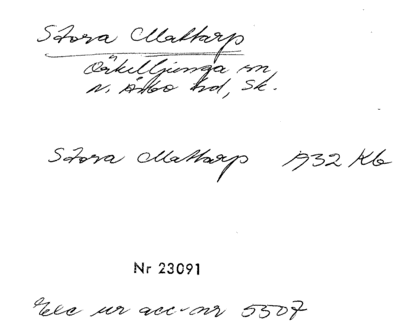 Stora Mattarp
Örkelljunga sn,
N. Åsbo hd, Sk.
Stora Mattarp 1932 Kb
Nr 23091
Exc ur acc-nr 5507